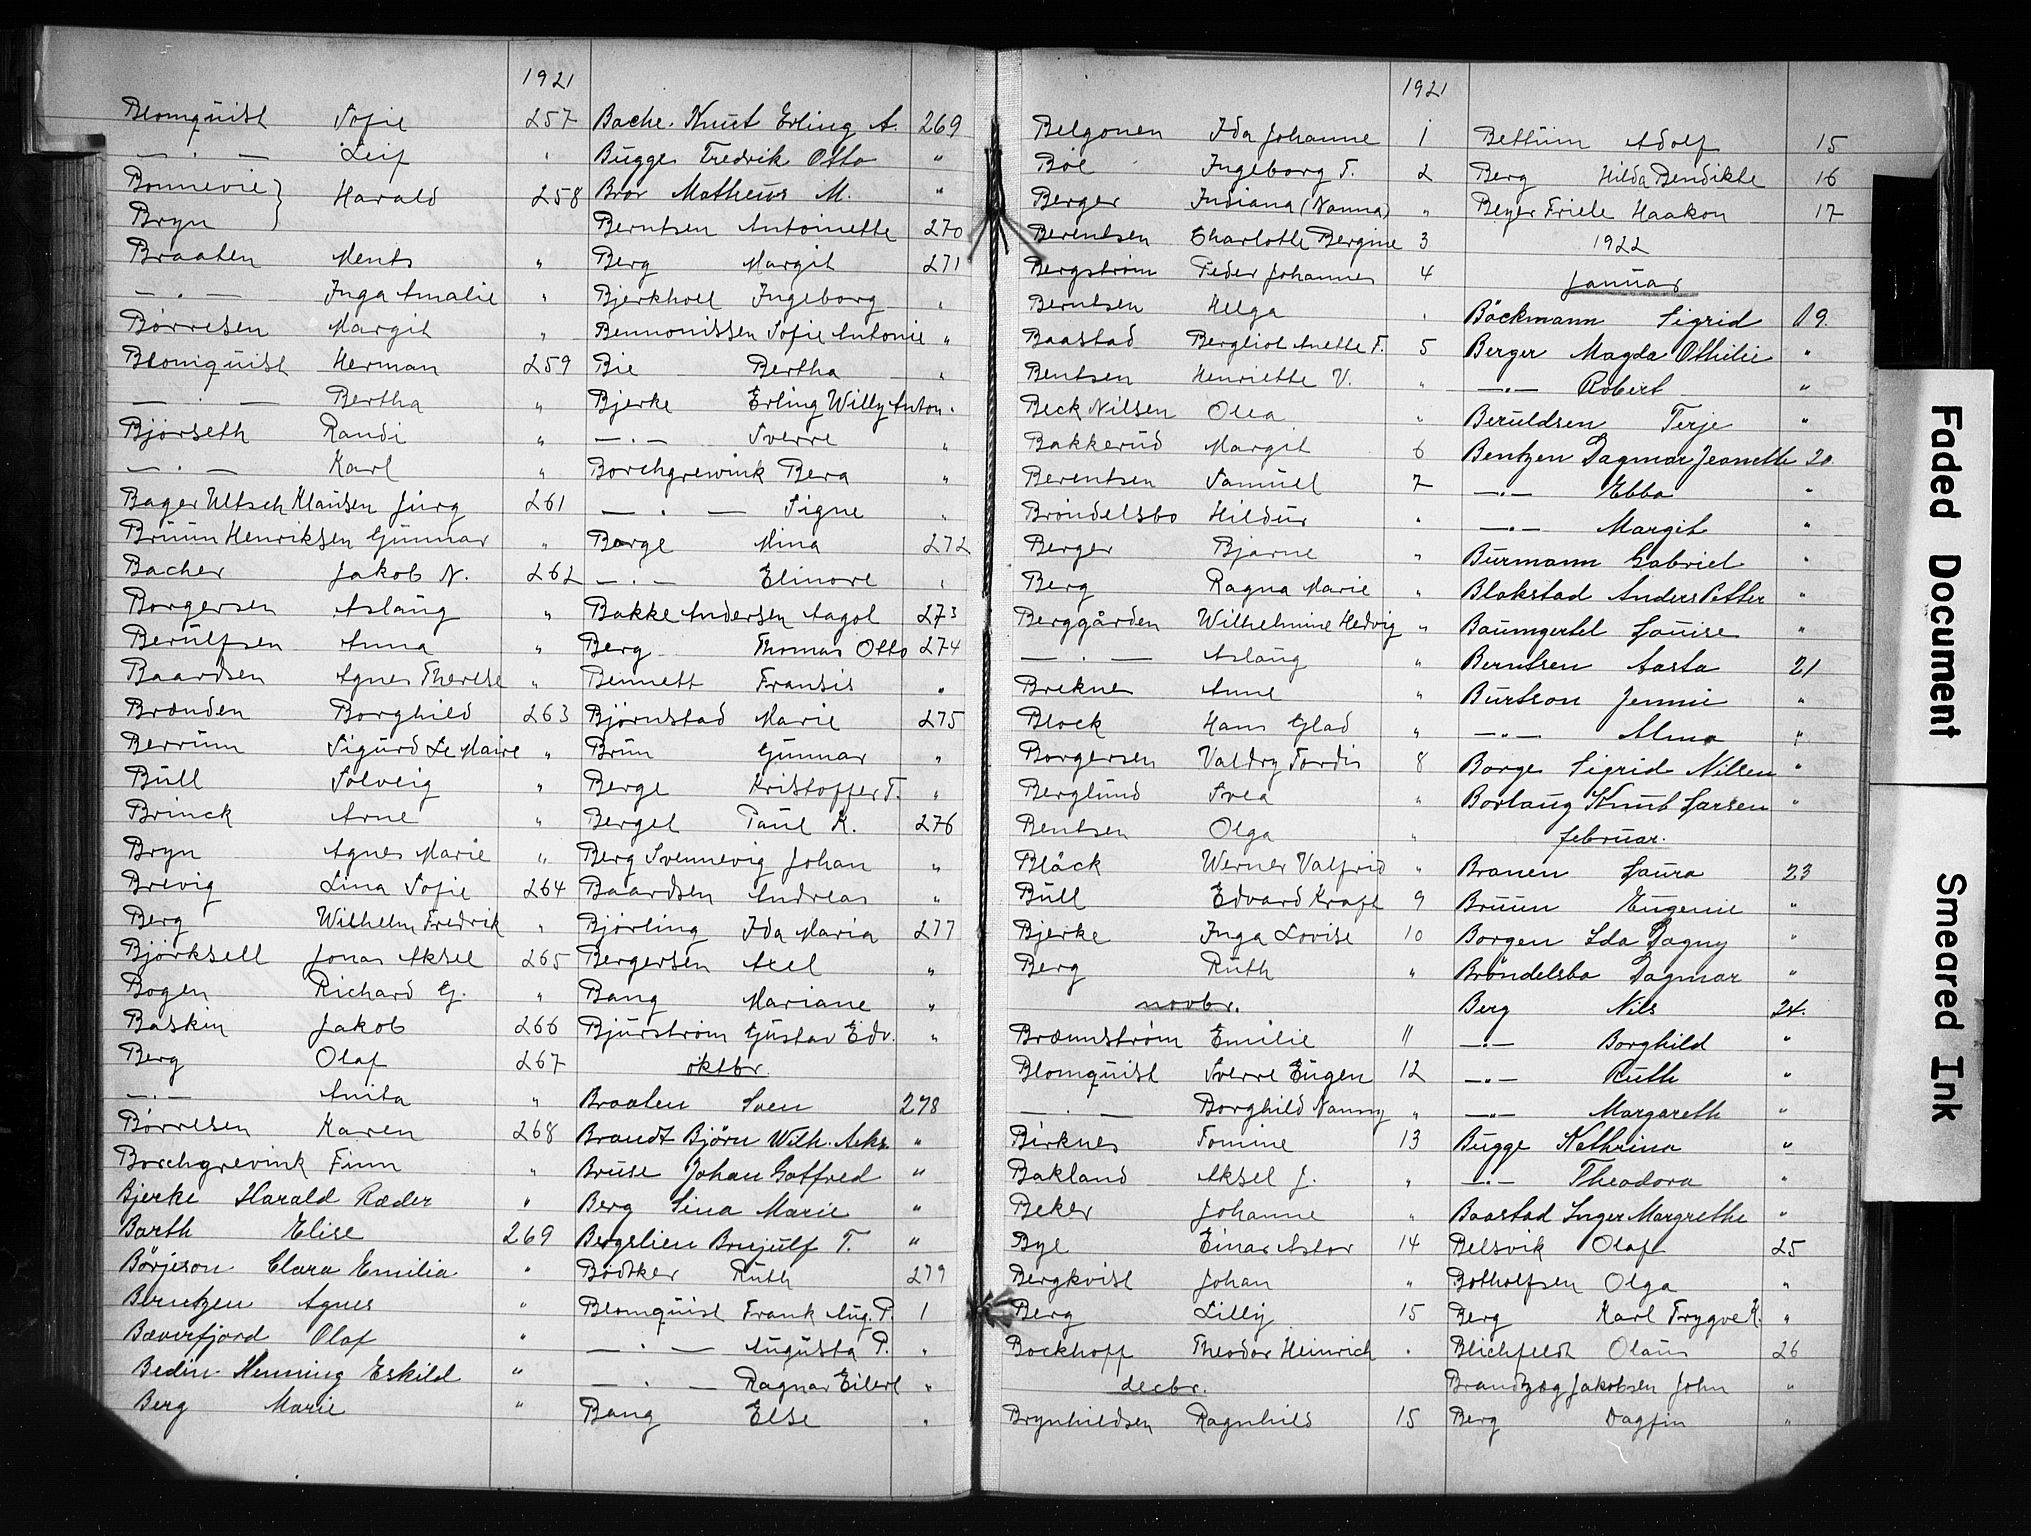 1921
Blomquist Sofie 257
— . — Leif "
Bonnevie } Harald 258
Bryn }
Braaten Ments "
— . — Inga Amalie "
Børresen Margit "
Blomquist Herman 259
— . — Bertha "
Bjørseth Randi "
— . — Karl "
Bager Ultsch Klausen Jürg 261
Bruun Henriksen Gunnar "
Bacher Jakob N. 262
Borgersen Aslaug "
Berulfsen Anna "
Baardsen Agnes Therese "
Brænden Borghild 263
Berrum Sigurd Le Maire "
Bull Solveig "
Brinck Arne "
Bryn Agnes Marie "
Brevig Lina Sofie 264
Berg Wilhelm Fredrik "
Bjørksell Jonas Aksel 265
Bogen Richard G. "
Baskin Jakob 266
Berg Olaf 267
— . — Anita "
Børresen Karen 268
Borchgrevink Finn "
Bjerke Harald Ræder "
Barth Elise 269
Børjeson Clara Emilia "
Berntzen Agnes "
Bæverfjord Olaf "
Bedin-Henning Eskild "
Berg Marie "
Bache-Knut Erling A. 269
Bugge Fredrik Otto "
Bror Matheus M. "
Berntsen Antoinette 270
Berg Margit 271
Bjerkholl Ingeborg "
Bennonissen Sofie Antonie "
Bie Bertha "
Bjerke Erling Willy Anton "
— . — Sverre "
Borchgrewink Bera "
— . — Signe "
Borge Mina 272
— . — Elinore "
Bakke Andersen Aagot 273
Berg Thomas Otto 274
Bennett Fransis "
Bjørnstad Marie 275
Brun Gunnar "
Berge Kristoffer T. "
Berget Paul K. 276
Berg Svennevig Johan "
Baardsen Andreas "
Bjørling Ida Maria 277
Bergersen Axel "
Bang Mariane "
Bjurstrøm Gustav Edv. "
oktbr.
Braaten Sven 278
Brandt Bjørn Wilh. Acks. "
Bruse Johan Gotfred "
Berg Lina Marie "
Bergslien Brujulf T. "
Bødtker Ruth 279
Blomquist Frank Aug. P. 1
— . — Augusta P. "
— . — Ragnar Eilert "
Bang Else "
1921
Belgonen Ida Johanne 1
Bøe Ingeborg T. 2
Berger Indiana (Nanna) "
Berentsen Charlotte Bergine 3
Bergstrøm Peder Johannes 4
Berntsen Helga "
Baastad Bergliot Anette F. 5
Bentsen Henriette V. "
Beck Nilsen Olea "
Bakkerud Margit 6
Berentsen Samuel 7
Brøndelsbo Hildur "
Berger Bjarne "
Berg Ragna Marie "
Berggården Wilhelmine Hedvig "
— . — Aslaug "
Brekne Anne "
Block Hans Glad "
Borgersen Valdry Tordis 8
Berglund Svea "
Bentsen Olga "
Bläck Werner Valfrid "
Bull Edvard Kraft 9
Bjerke Inga Lovise 10
Berg Ruth "
novbr.
Brænnstrøm Emilie 11
Blomquist Sverre Eugen 12
— . — Borghild Nanny "
Birknes Tomine 13
Bakland Aksel J. "
Beker Johanne "
Bye Einar Astor 14
Bergkvist Johan "
Berg Lilly 15
Bockhoff Theodor Heinrich "
decbr.
Brynhildsen Ragnhild 15
Bettum Adolf 15
Berg Hilda Bendikte 16
Beyer Friele Haakon 17
1922
Januar
Bäckmann Sigrid 19.
Berger Magda Othilie "
— . — Robert "
Beruldsen Terje "
Bentzen Dagmar Jeanette 20.
— . — Ebba "
— . — Margit "
Burmann Gabriel "
Blakstad Anders Petter "
Baumgertel Louise "
Berntsen Aasta 21
Burtson Jennie "
— . — Alma "
Borge Sigrid Nilsen "
Borlaug Knut Larsen "
februar.
Branen Laura 23
Bruun Eugenie "
Borgen Ida Dagny "
Brøndelsbo Dagmar "
Berg Nils 24.
— . — Borghild "
— . — Ruth "
— . — Margareth "
Bugge Kathrina "
— . — Theodora "
Baastad Inger Margrethe "
Belsvik Olaf 25
Botholfsen Olga "
Berg Karl Trygve K. "
Blichfeldt Olaus 26
Brandtzæg Jakobsen John "
Berg Dagfin "
Faded Document
Smeared Ink